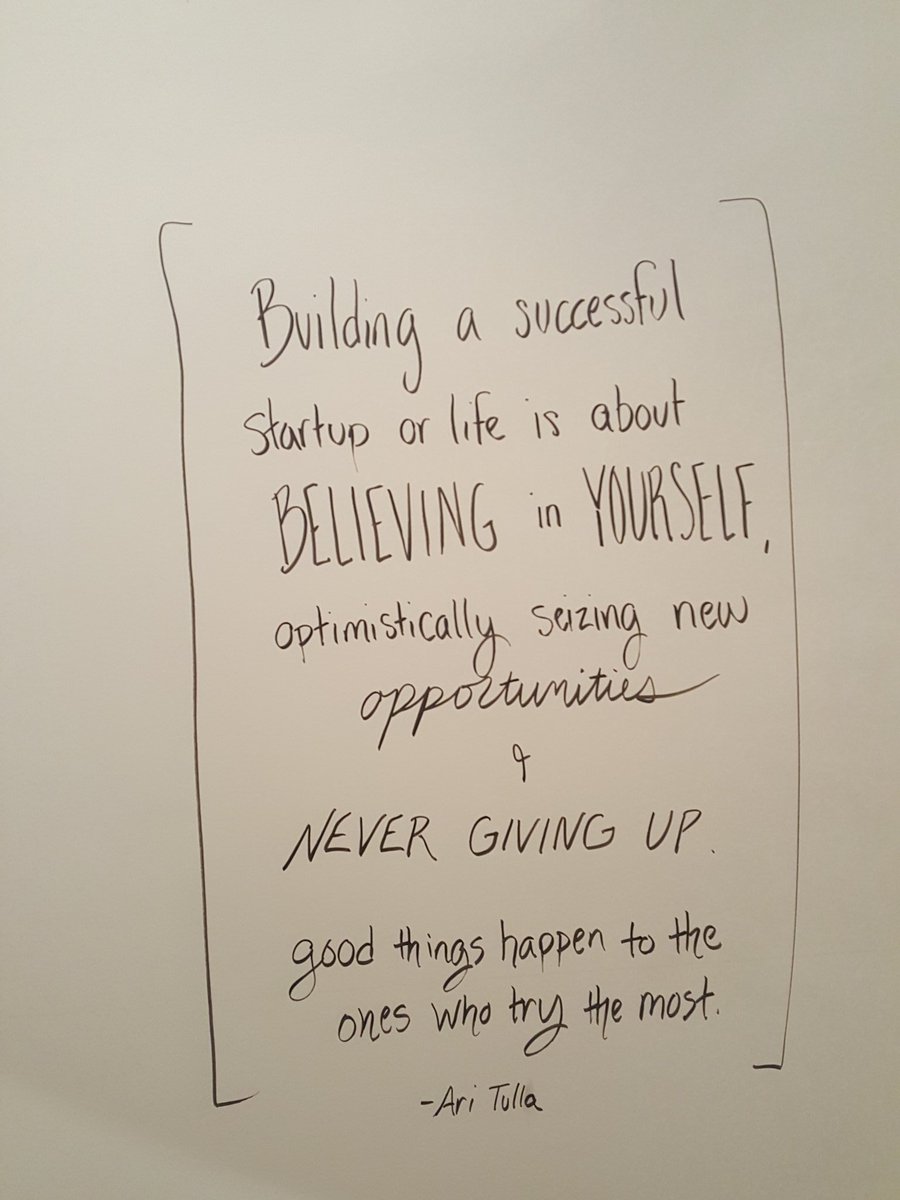 Building a successful
startup or life is about
BELIEVING in YOURSELF,
optimistically seizing new
opportunities
&
NEVER GIVING UP.
good things happen to the
ones who try the most.
-Ari Tulla